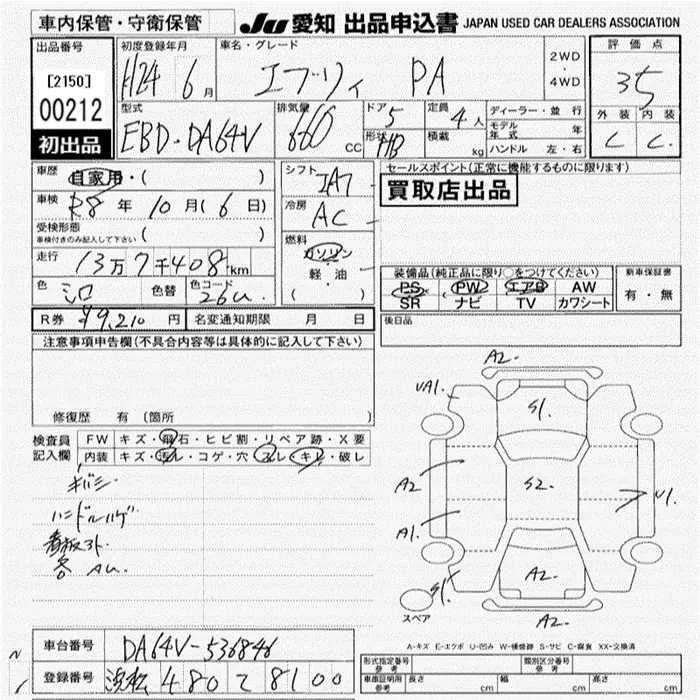 車内保管・守衛保管 JU 愛知 出品申込書 JAPAN USED CAR DEALERS ASSOCIATION
出品番号 初度登録年月 車名・グレード 評価点
[2150] H24 6月 エブリィ PA 2WD・4WD 3.5
00212 型式 排気量 ドア 定員 ディーラー・並行 外装 内装
EBD・DA64V 660 CC 5 4人 モデル年式 年 C C
初出品 形状 HB 積載 kg ハンドル 左・右
車歴 自家用・( ) シフト IA7 セールスポイント(正常に機能するものに限ります)
車検 R8年10月(6日) 冷房 AC 買取店出品
受検形態 ( )
車検付きのみ記入して下さい
走行 13万7千408km 燃料 ガソリン 軽・油 ( )
装備品(純正品に限り○をつけてください) 新車保証書
色 シロ 色替 色コード 26U PS PW エアB AW 有・無
SR ナビ TV カワシート
R券 ¥9,210円 名変通知期限 月 日 後日品
注意事項申告欄(不具合内容等は具体的に記入して下さい)
修復歴 有 (箇所
検査員記入欄 FW キズ・飛石・ヒビ割・リペア跡・X要
内装 キズ・汚レ・コゲ・穴・スレ・キレ・破レ
キバミ
ハンドルハゲ
看板アト
各 AU.
A2.
UA1.
S1.
A2
S2.
U1.
A1.
A2.
S1.
スペア
A2.
A-キズ E-エクボ U-凹み W-補修跡 S-サビ C-腐食 XX-交換済
車台番号 DA64V-536846
登録番号 浜松 480 て 8100
形式指定番号 参考 類別区分番号 参考
車庫証明用 参考 長さ cm 幅 cm 高さ cm